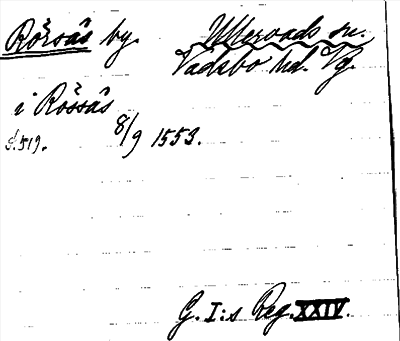 Rörsås by. Utterвads sn.
Vadsbo hd. Vg.
i Rössås
s. 519. 8/9 1553.
G. I:s Reg. XXIV.